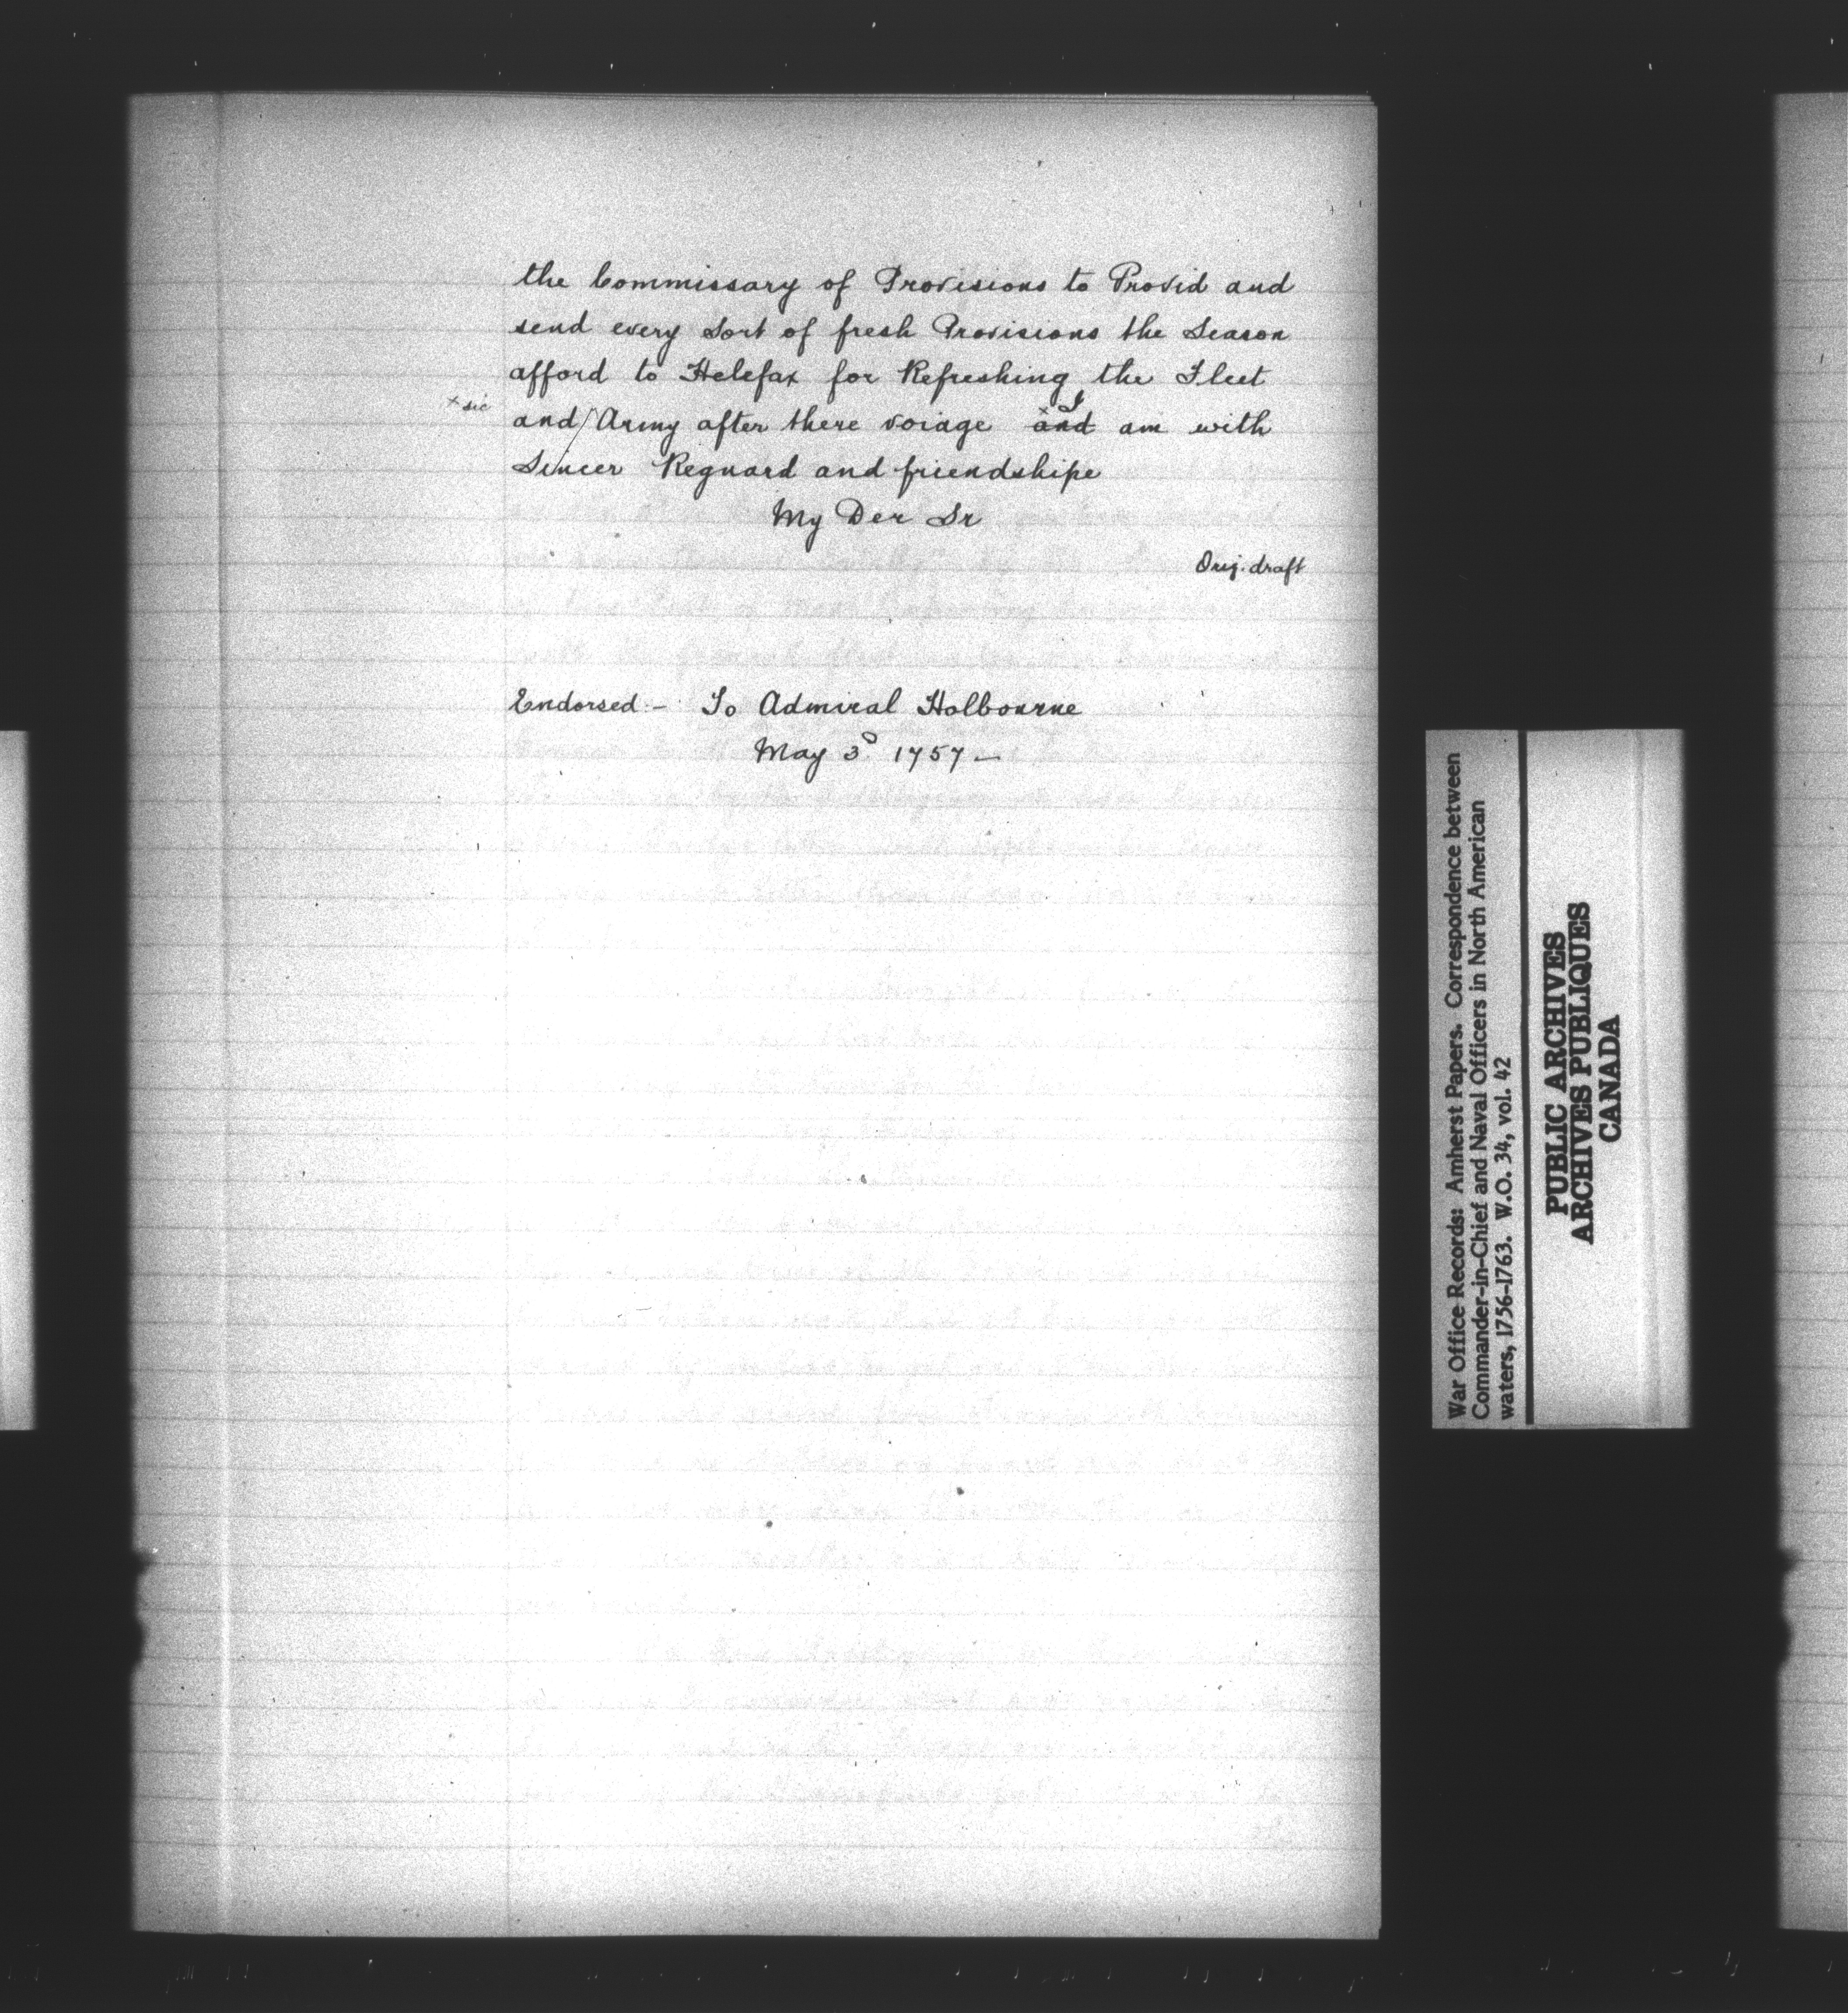 the Commissary of Provisions to Provid and
send every Sort of fresh Provisions the Season
afford to Helefax for Refreshing the Fleet
x sic
and Army after there voiage x and I am with
Sincer Reguard and friendshipe
My Der Sr
Orig. draft
Endorsed:- To Admiral Holbourne
May 3d 1757 —
War Office Records: Amherst Papers. Correspondence between
Commander-in-Chief and Naval Officers in North American
waters, 1756-1763. W.O. 34, vol. 42
PUBLIC ARCHIVES
ARCHIVES PUBLIQUES
CANADA